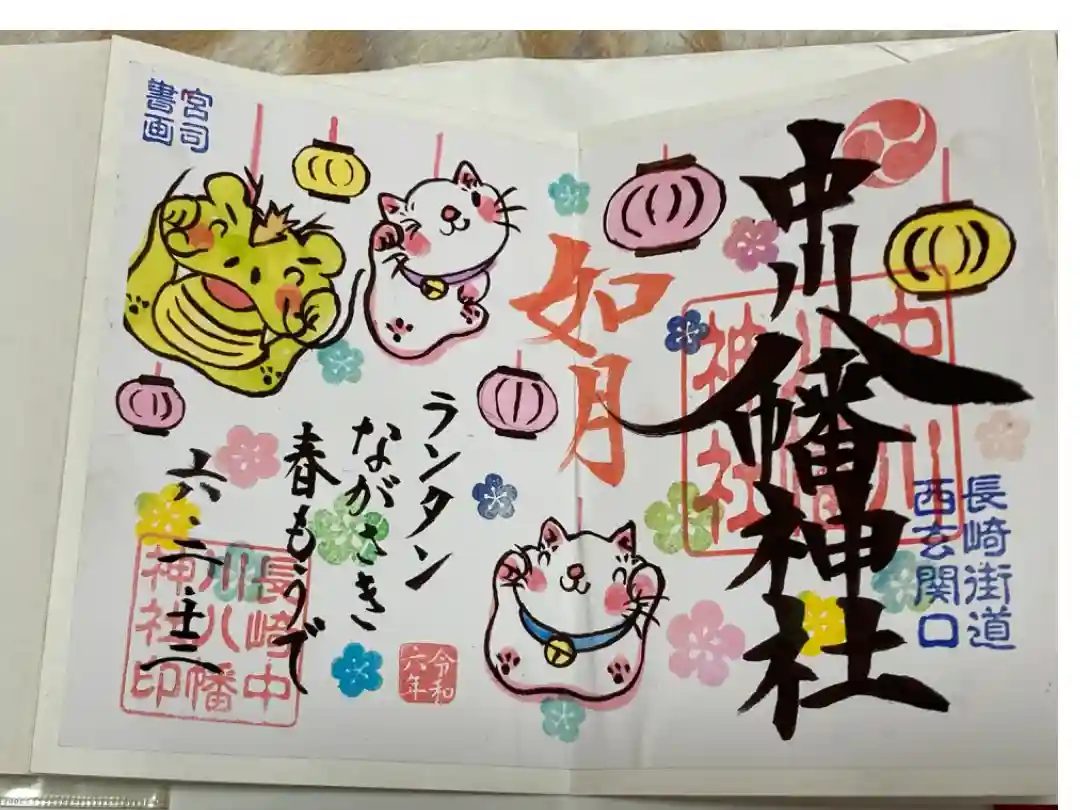 長崎街道
西玄関口
中川八幡神社
中川
八幡
神社
如月
ランタン
ながさき
春もうで
六・二・
令和
六年
長崎中
川八幡
神社印
宮司
書画